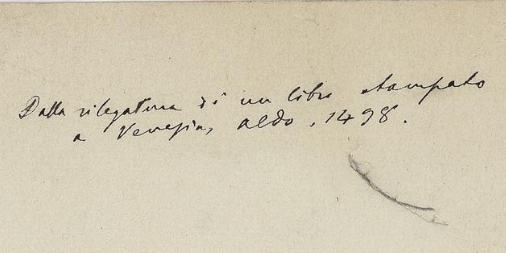 Dalla rilegatura di un libro stampato
a Venezia, aldo, 1498.